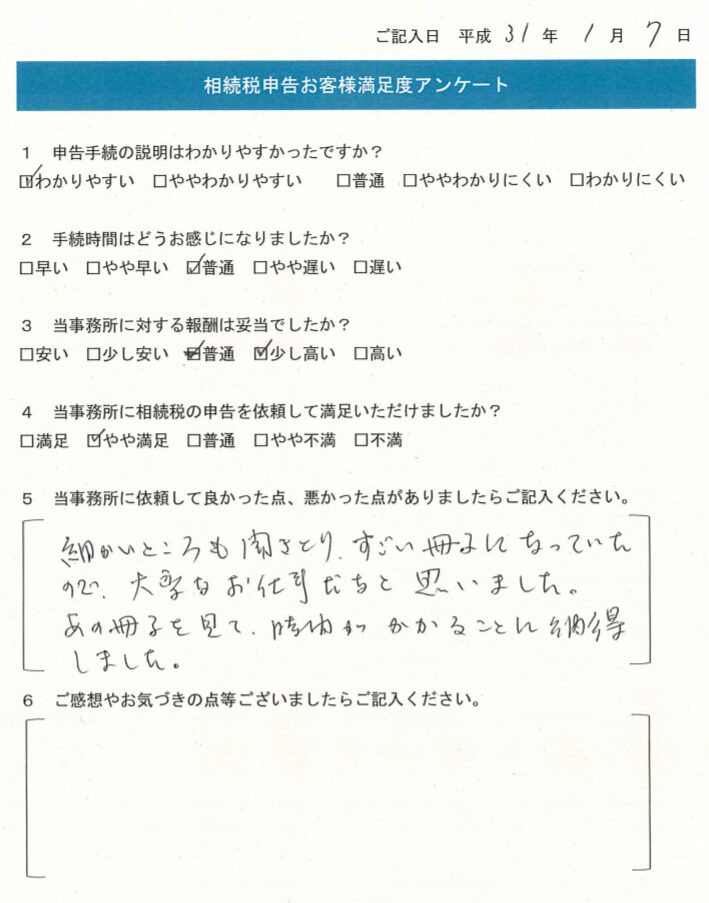 ご記入日 平成 31 年 1 月 7 日
相続税申告お客様満足度アンケート
1 申告手続の説明はわかりやすかったですか？
☑わかりやすい □ややわかりやすい □普通 □ややわかりにくい □わかりにくい
2 手続時間はどうお感じになりましたか？
□早い □やや早い ☑普通 □やや遅い □遅い
3 当事務所に対する報酬は妥当でしたか？
□安い □少し安い ☑普通 ☑少し高い □高い
4 当事務所に相続税の申告を依頼して満足いただけましたか？
□満足 ☑やや満足 □普通 □やや不満 □不満
5 当事務所に依頼して良かった点、悪かった点がありましたらご記入ください。
細かいところも聞きとり、すごい冊子になっていた
ので、大変なお仕事だなと思いました。
あの冊子を見て、時間がかかることに納得
しました。
6 ご感想やお気づきの点等ございましたらご記入ください。